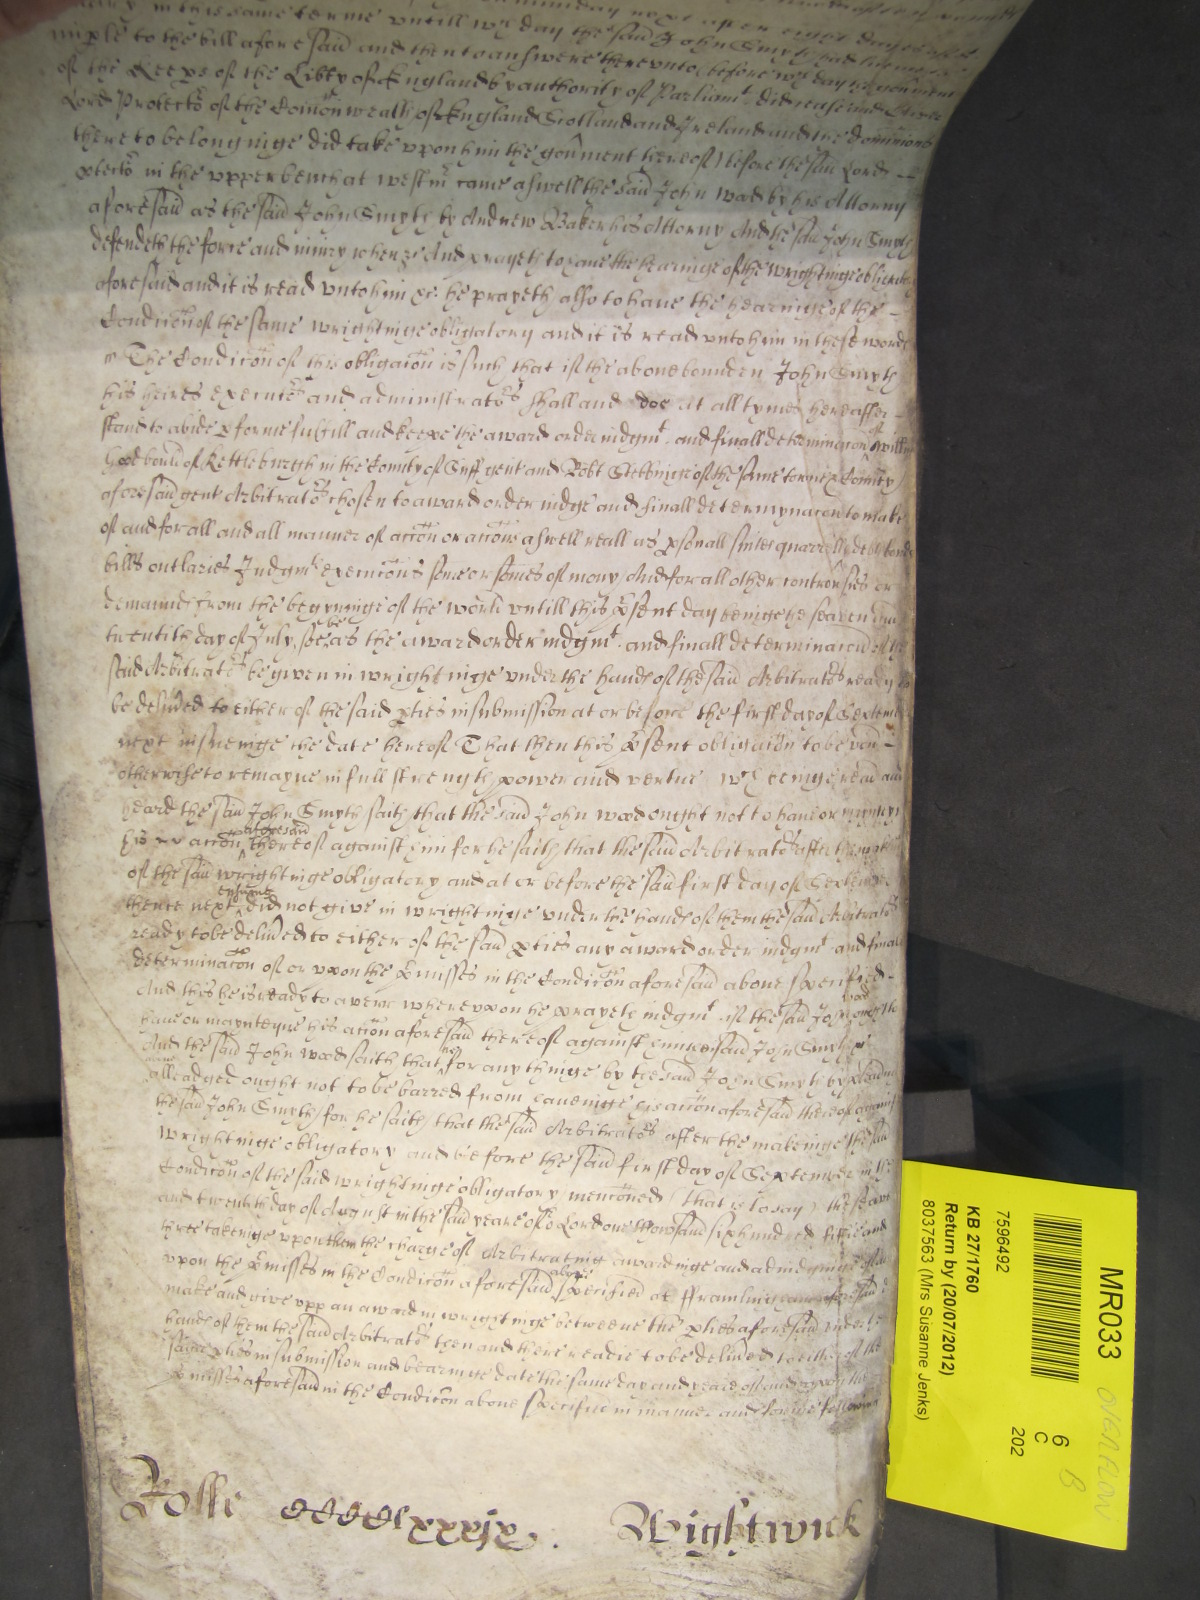 in this same terme untill wch day the said John Smyth had licence to
imple to the bill aforesaid and then to answere thereunto before wch day the govment
of the Keeps of the Libty of England by authority of Parliamt did cease and Oliver
Lord Protector of the Comonwealth of England Scotland and Ireland and the dominions
there to belonginge did take upon him the govment thereof) before the said Lord
ptector in the upper bench at Westmr came aswell the said John Wood by his Attorny
aforesaid as the said John Smyth by Andrew Baker his Attorny And the said John Smyth
defendeth the force and iniury when &c And prayeth to have the hearinge of the wrightinge obligatory
aforesaid and it is read unto him &c he prayeth also to have the hearinge of the
Condicon of the same wrightinge obligatory and it is read unto him in these words
The Condicon of this obligacon is such that if the above bounden John Smyth
his heires executrs and administrators shall and doe at all tymes hereafter
stand to abide pforme fulfill and keepe the award order iudgmt and finall determinacon of Willm
of Kettleburgh in the County of Suff gent and Robt Stebbinge of the same towne & County
aforesaid gent Arbitrators chosen to award order iudge and finall determynacon to make
of and for all and all manner of accon or accons aswell reall as psonall suites quarrells debts
bills outlaries Judgmts execucons some or somes of mony And for all other controvsies or
demaunds from the begynninge of the world untill this psent day beinge the seaven and
twentith day of July, soe as the award order iudgmt and finall determinacon of the
said Arbitrators be given in wrightinge under the hands of the said Arbitrators ready to
be delived to either of the said pties in submission at or before the first day of Septembr
next insueinge the date hereof That then this psent obligacon to be void
otherwise to remayne in full strength power and vertue wch beinge read and
heard the said John Smyth saith that the said John Wood ought not to have or maynteyne
his accon aforesaid thereof against him for he saith that the said Arbitrators after the makinge
of the said wrightinge obligatory and at or before the said first day of September
thence next ensuinge did not give in wrightinge under the hands of them the said Arbitrators
ready to be delived to either of the said pties any award order iudgmt and finall
determinacon of or upon the pmisses in the Condicon aforesaid above specified
And this he is ready to averr whereupon he prayeth iudgmt if the said John Wood ought to
have or maynteyne his accon aforesaid thereof against him the said John Smyth &c
And the said John Wood saith that he for any thinge by the said John Smyth by pleadinge
above alleadged ought not to be barred from haveinge his accon aforesaid thereof against
the said John Smyth for he saith that the said Arbitrators after the makeinge of the said
wrightinge obligatory and before the said first day of September in the
Condicon of the said wrightinge obligatory mencioned (that is to say) the seaven
and twentith day of August in the said yeare of or Lord one thowsand six hundred fiftie and
three takeinge upon them the charge of Arbitratinge awardinge and adiudginge of and
upon the pmisses in the Condicon aforesaid above specified at Framlingham aforesaid did
make and give upp an award in wrightinge betweene the pties aforesaid under the
hands of them the said Arbitrators then and there readie to be delived to either of the
said pties in submission and bearinge date the same day and yeare of and upon the
pmisses aforesaid in the Condicon above specified in manner and forme followinge
Rolle CCCClxxxix. Wightwick
MR033
6
C
202
7596492
KB 27/1760
Return by (20/07/2012)
8037563 (Mrs Susanne Jenks)